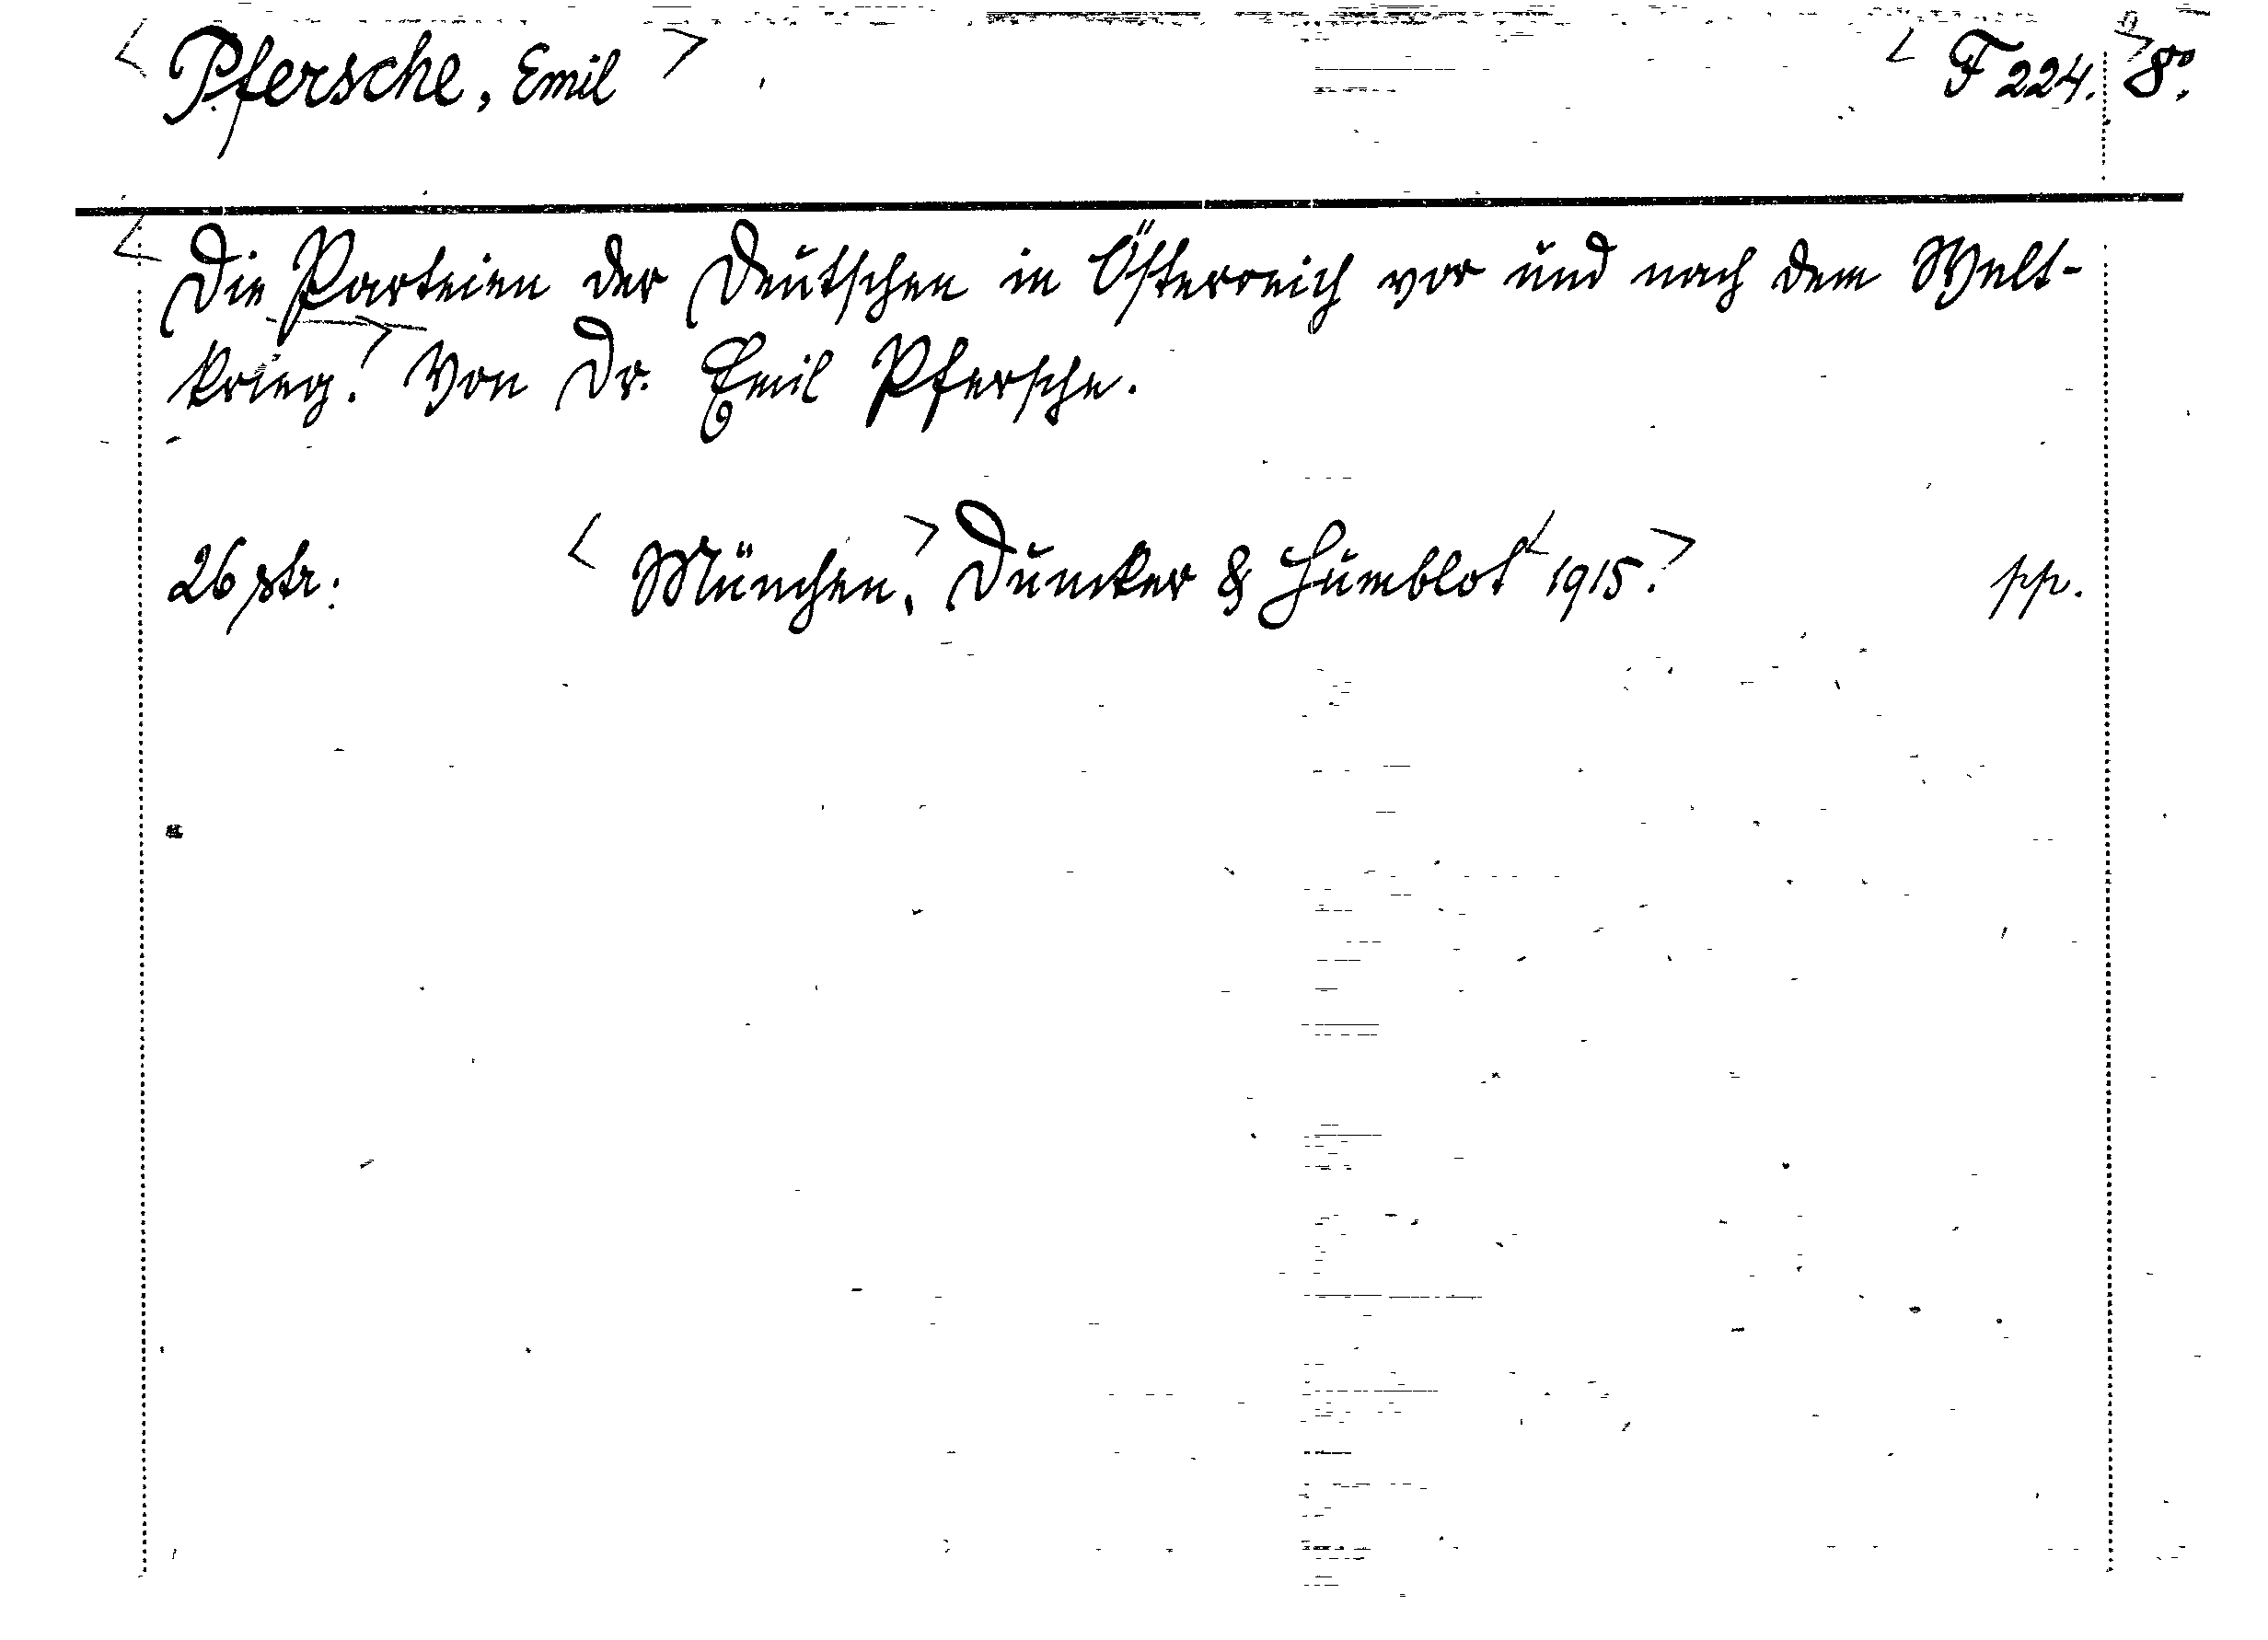 < Pfersche, Emil > < F 224. > 8°.
< Die Parteien der Deutschen in Österreich vor und nach dem Welt-
krieg. > Von Dr. Emil Pfersche.
26 str. < München, > Duncker & Humblot < 1915. > pp.